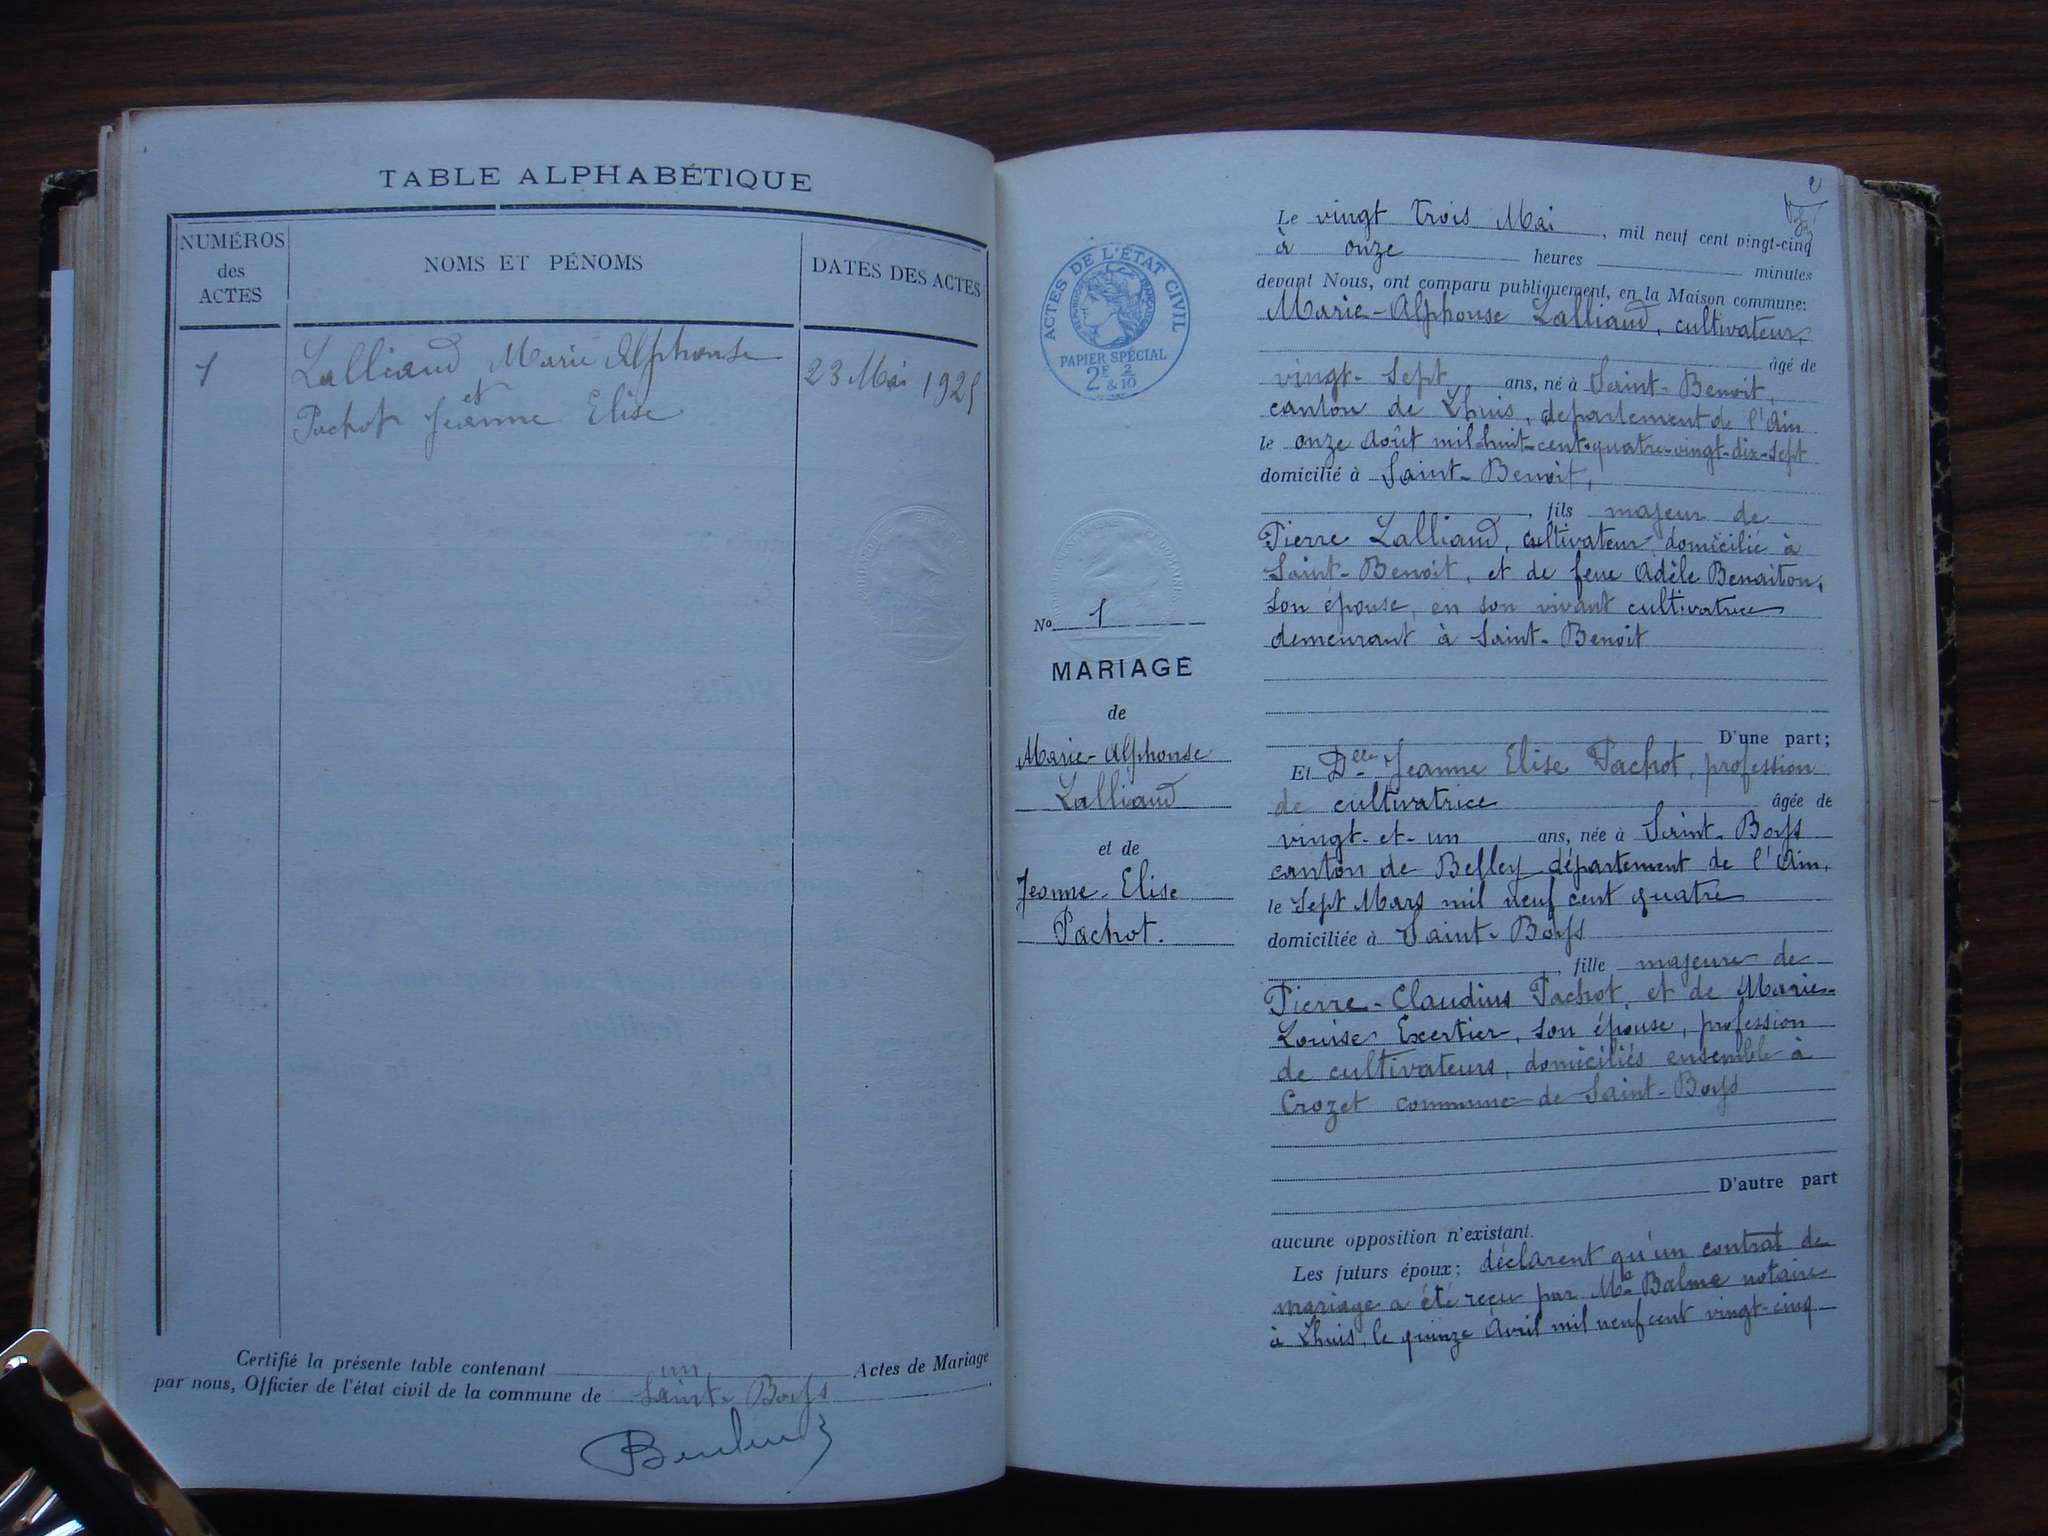 TABLE ALPHABÉTIQUE
NUMÉROS
des
ACTES
NOMS ET PÉNOMS
DATES DES ACTES
1
Lalliaud Marie Alphonse
et
Pachot Jeanne Elise
23 Mai 1925
Certifié la présente table contenant un Actes de Mariage
par nous, Officier de l'état civil de la commune de Saint-Boys
ACTES DE L'ÉTAT CIVIL
PAPIER SPÉCIAL
2F & 2/10
No 1
MARIAGE
de
Marie-Alphonse
Lalliaud
et de
Jeanne-Elise
Pachot.
Le vingt trois Mai, mil neuf cent vingt-cinq
à onze heures minutes
devant Nous, ont comparu publiquement, en la Maison commune:
Marie-Alphonse Lalliaud, cultivateur,
âgé de
vingt-sept ans, né à Saint-Benoit,
canton de Lhuis, département de l'Ain
le onze Août mil-huit-cent-quatre-vingt-dix-sept
domicilié à Saint-Benoit,
, fils majeur de
Pierre Lalliaud, cultivateur domicilié à
Saint-Benoit, et de feue Adèle Benoiton,
son épouse, en son vivant cultivatrice
demeurant à Saint-Benoit
D'une part;
Et Delle Jeanne Elise Pachot, profession
de cultivatrice âgée de
vingt-et-un ans, née à Saint-Boys
canton de Belley département de l'Ain,
le Sept Mars mil neuf cent quatre
domiciliée à Saint-Boys
, fille majeure de
Pierre-Claudius Pachot, et de Marie-
Louise Exertier, son épouse, profession
de cultivateurs, domiciliés ensemble à
Crozet commune de Saint-Boys
D'autre part
aucune opposition n'existant.
Les futurs époux; déclarent qu'un contrat de
mariage a été reçu par Me Balme notaire
à Lhuis, le quinze Avril mil neuf cent vingt-cinq